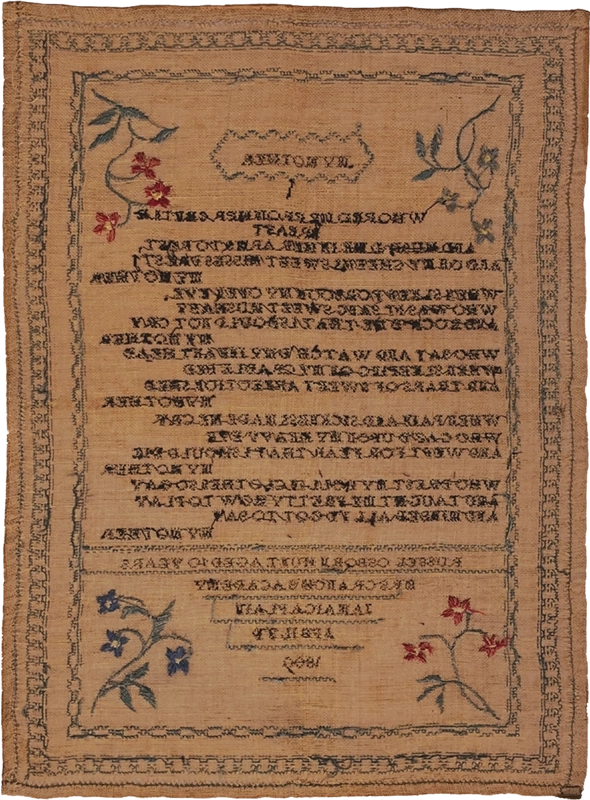 MY MOTHER.
WHO FED ME FROM HER GENTLE
BREAST
AND HUSHD ME IN HER ARMS TO REST
AND ON MY CHEEK SWEET KISSES PREST
MY MOTHER
WHEN SLEEP FORSOOK MY OPEN EYE
WHO WAS IT SUNG SWEET HUSHABY
AND ROCKD ME THAT I SHOULD NOT CRY
MY MOTHER
WHO SAT AND WATCHD MY INFANT HEAD
WHEN SLEEPING ON MY CRADLE BED
AND TEARS OF SWEET AFFECTION SHED
MY MOTHER
WHEN PAIN AND SICKNESS MADE ME CRY
WHO GAZD UPON MY HEAVY EYE
AND WEPT FOR FEAR THAT I SHOULD DIE
MY MOTHER
WHO DREST MY DOLL IN CLOTHES SO GAY
AND TAUGHT ME PRETTY HOW TO PLAY
AND MINDED ALL I GOT TO SAY
MY MOTHER
RUSSEL OSBORN HUNT AGED 10 YEARS
CRANCHS ACADEMY
JAMAICA PLAIN
APRIL
1809